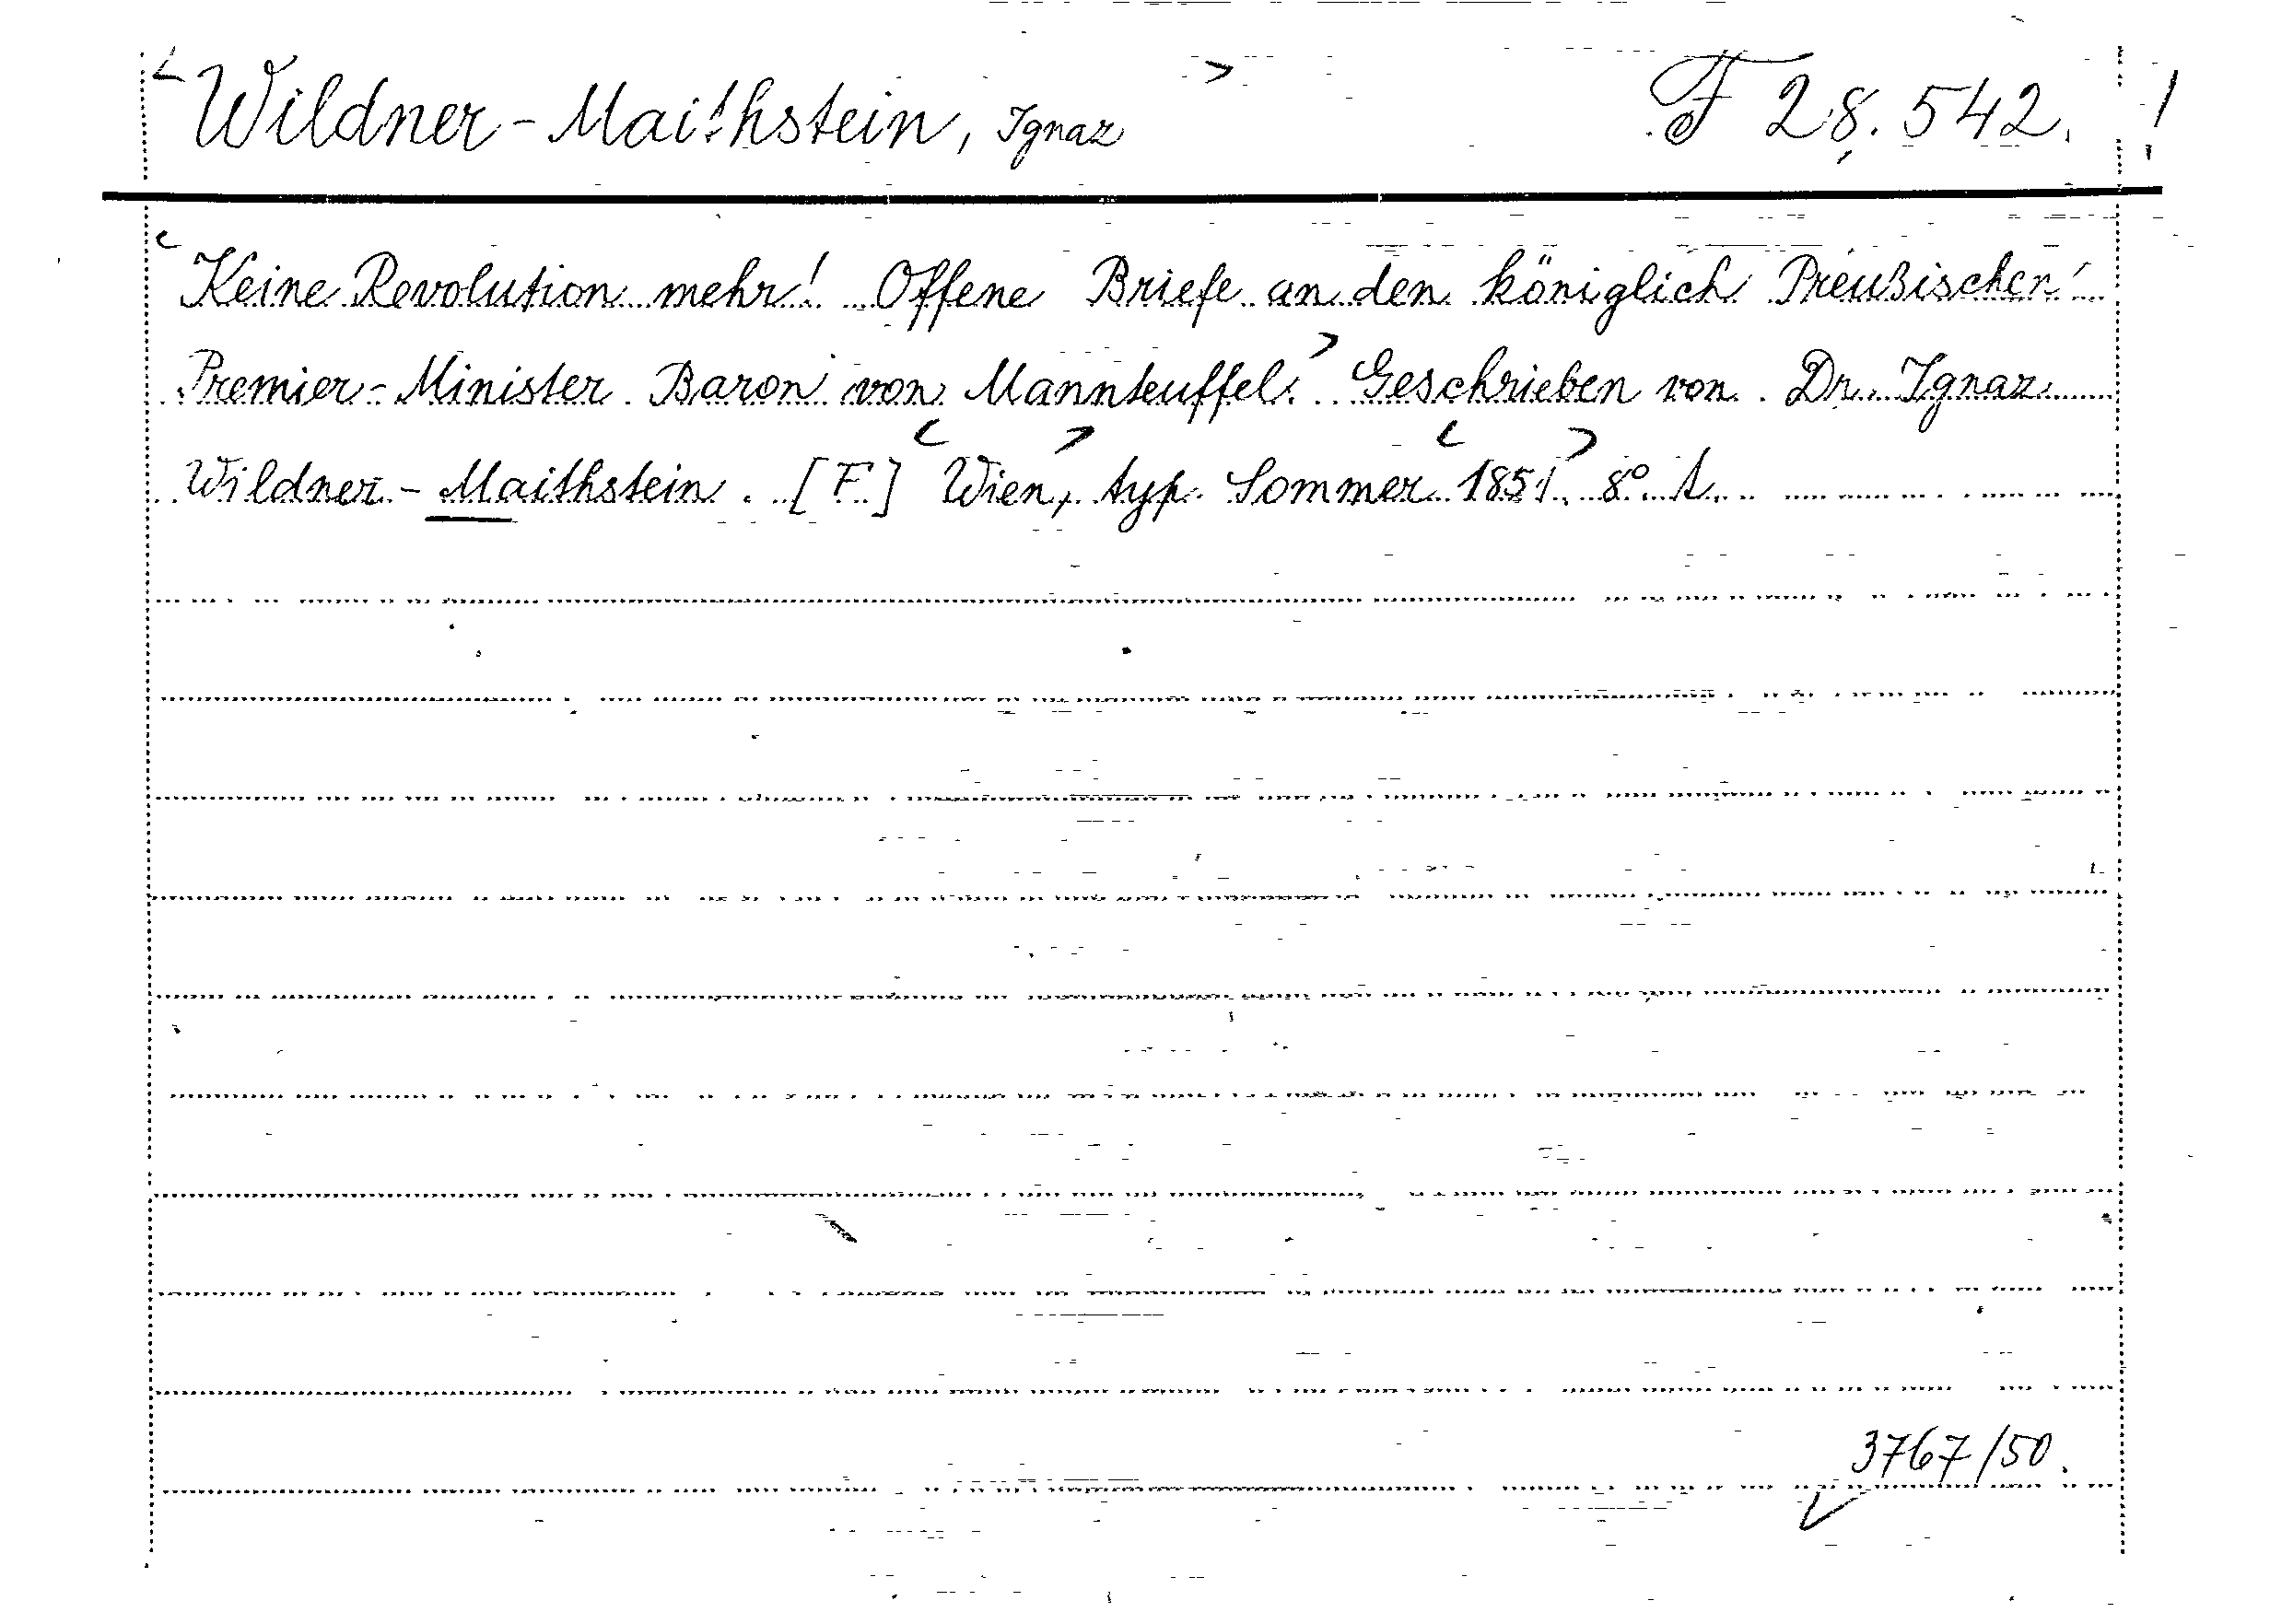 <Wildner-Maithstein, Ignaz> F 28.542. !
<Keine Revolution mehr! Offene Briefe an den königlich Preußischen
Premier-Minister Baron von Mannteuffel.> Geschrieben von Dr. Ignaz
Wildner-Maithstein. [F.] <Wien,> typ. Sommer <1851.> 8°.
3767/50.